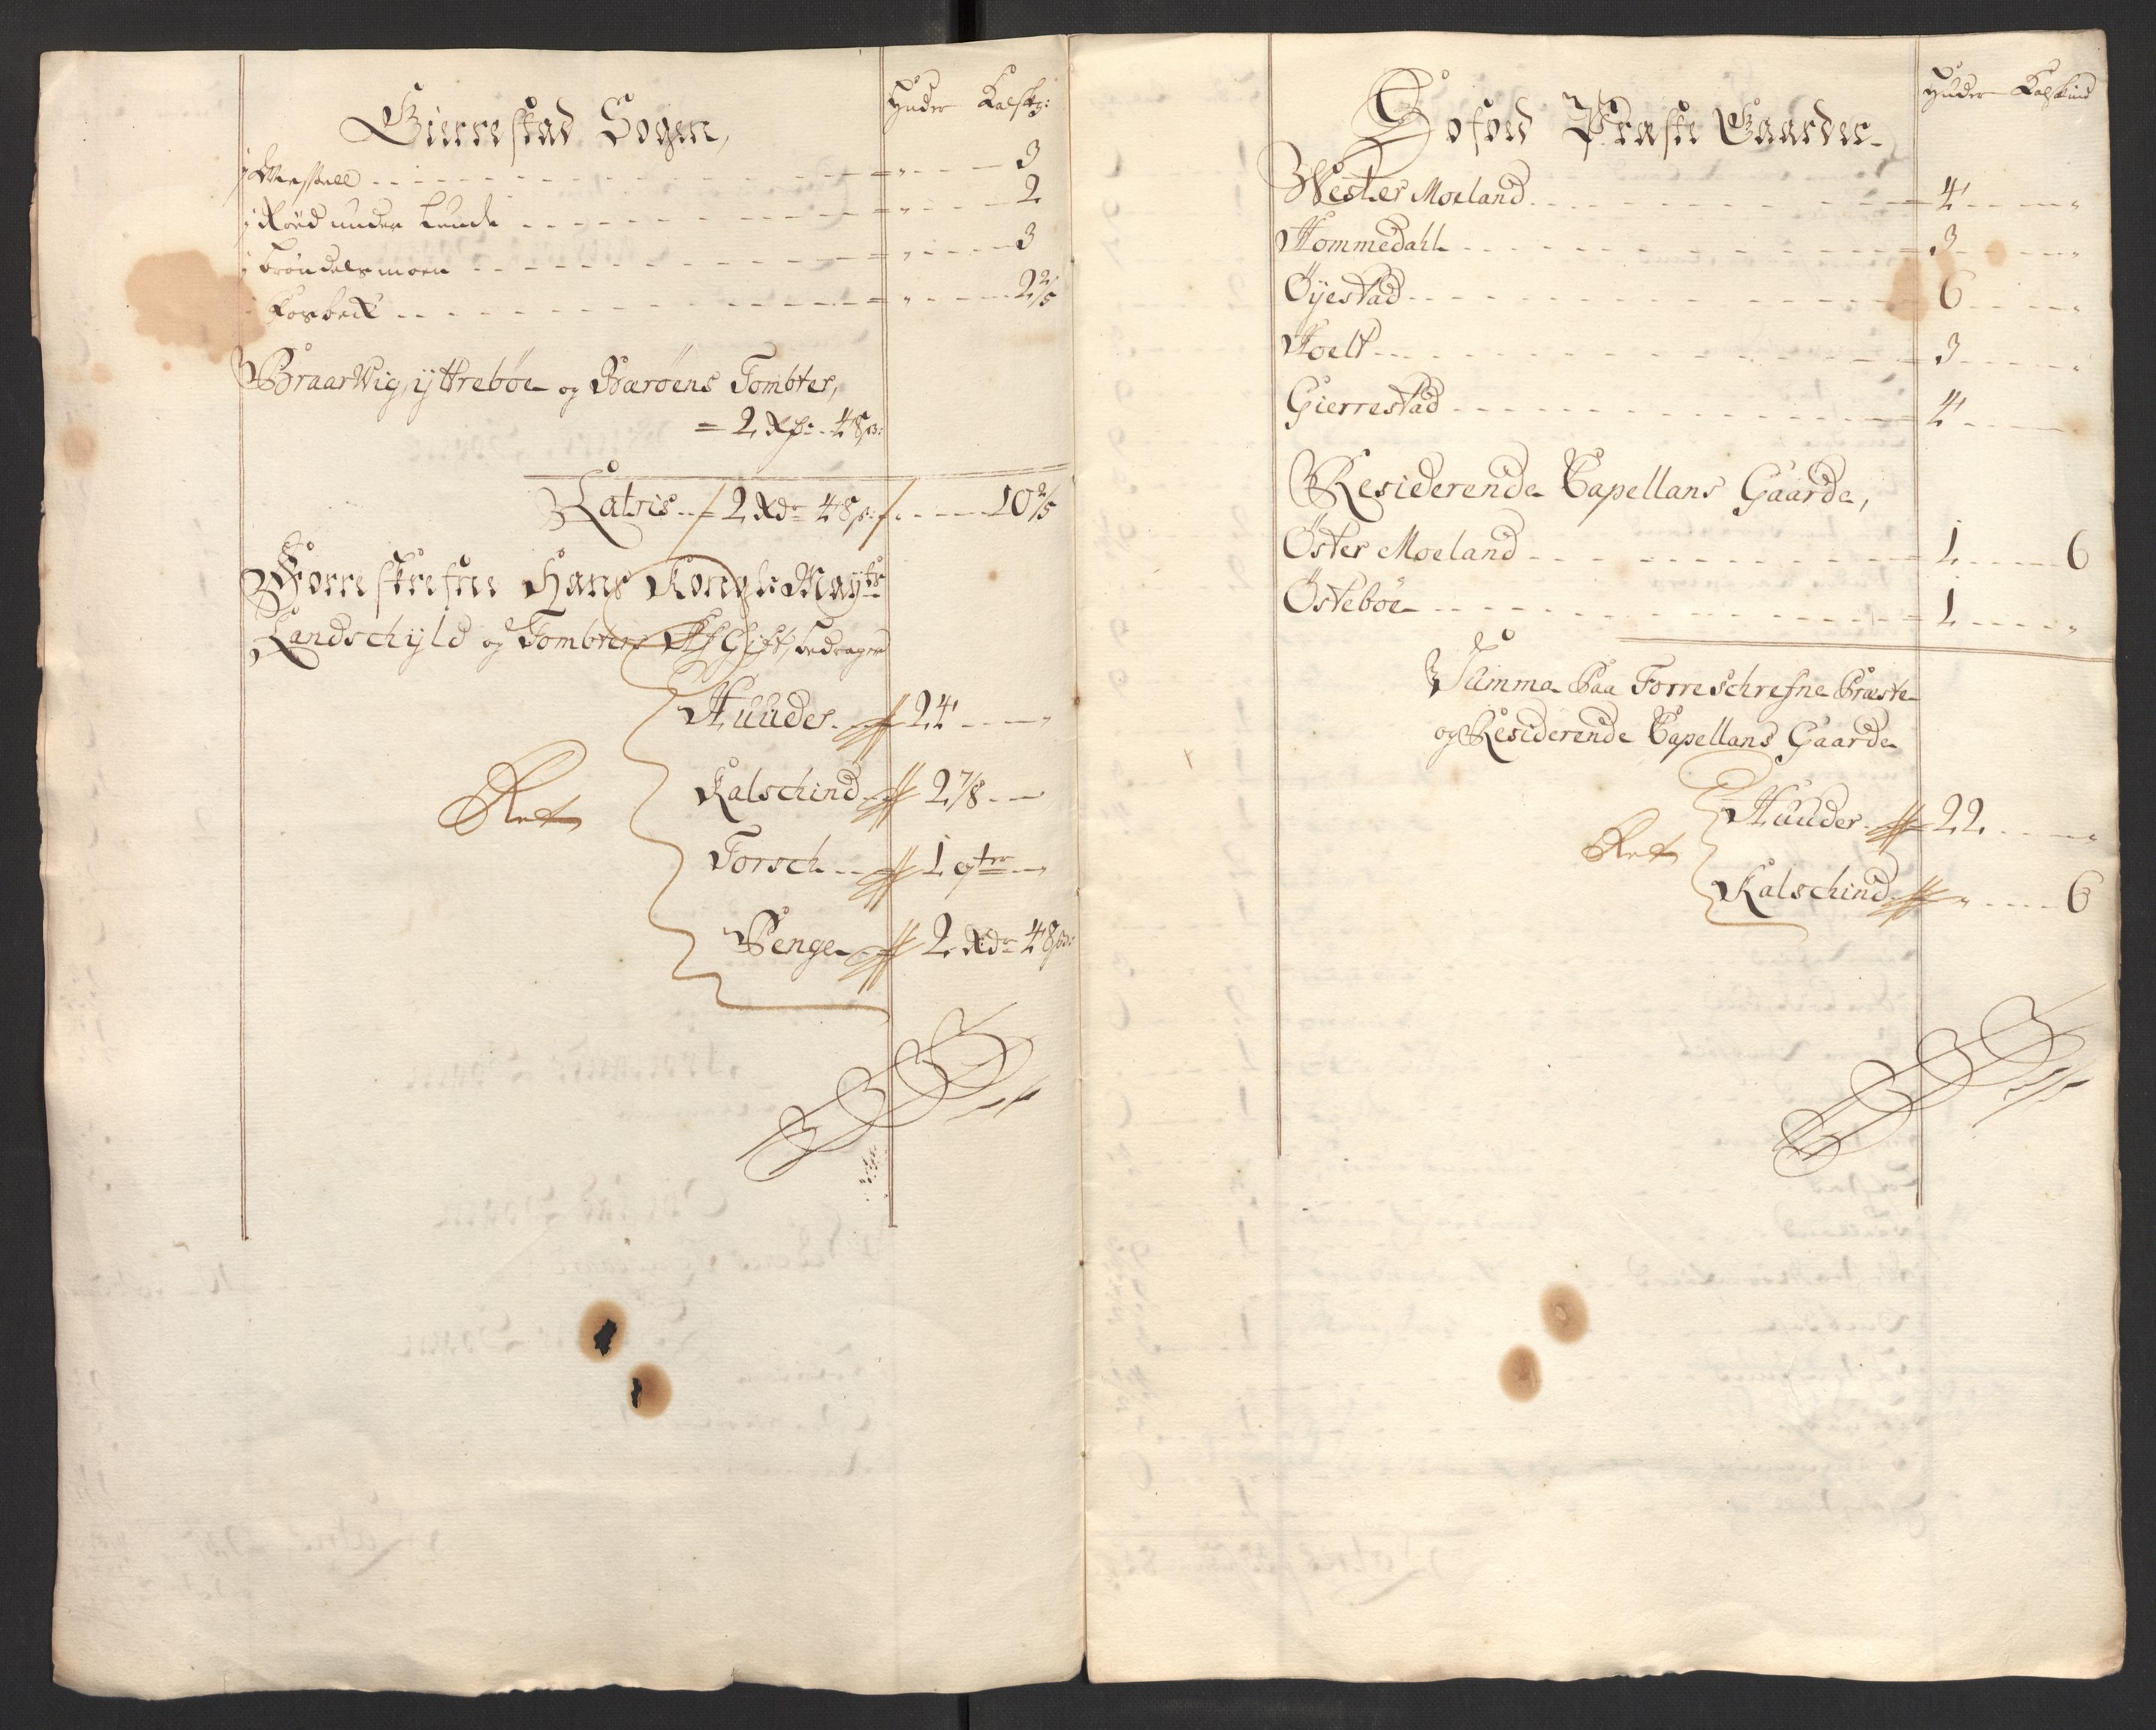 Huder Kalsk:
Gierrestad Sogen,
j Messell - - - " - - 3
j Røed under Lunde - - - " - - 2
j Brøndelsmoen - - - " - - 3
Forbech - - - " - - 2 2/5
BraarWig, yttrebøe og Bærøens Tombter,
= 2 Rdr. 48 s:
Latris - - 2 Rdr 48 s: - - 10 2/5
Forreskrefne Hans Kongl: Mayts
Landschyld og Tombters Afgift, bedrager
Huuder - - 24 - - "
Kalschind - - 2 7/8 - -
Ret
Torsch - - 1 qtr - - "
Penge - - 2 Rdr 48 s:
Huder Kalskind
Præste Gaarder
Wester Moeland - - - 4 - - "
Hommedahl - - - 3 - - "
Øyestad - - - 6 - - "
Hoelt - - - 3 - - "
Gierrestad - - - 4 - -
Residerende Capellans Gaarde,
Øster Moeland - - - 1 - - 6
Østebøe - - - 1 - - "
Summa Paa Forreschrefne Præste
og Residerende Capellans Gaarde
Huuder - - 22 - - "
Ret
Kalschind - - " - - 6